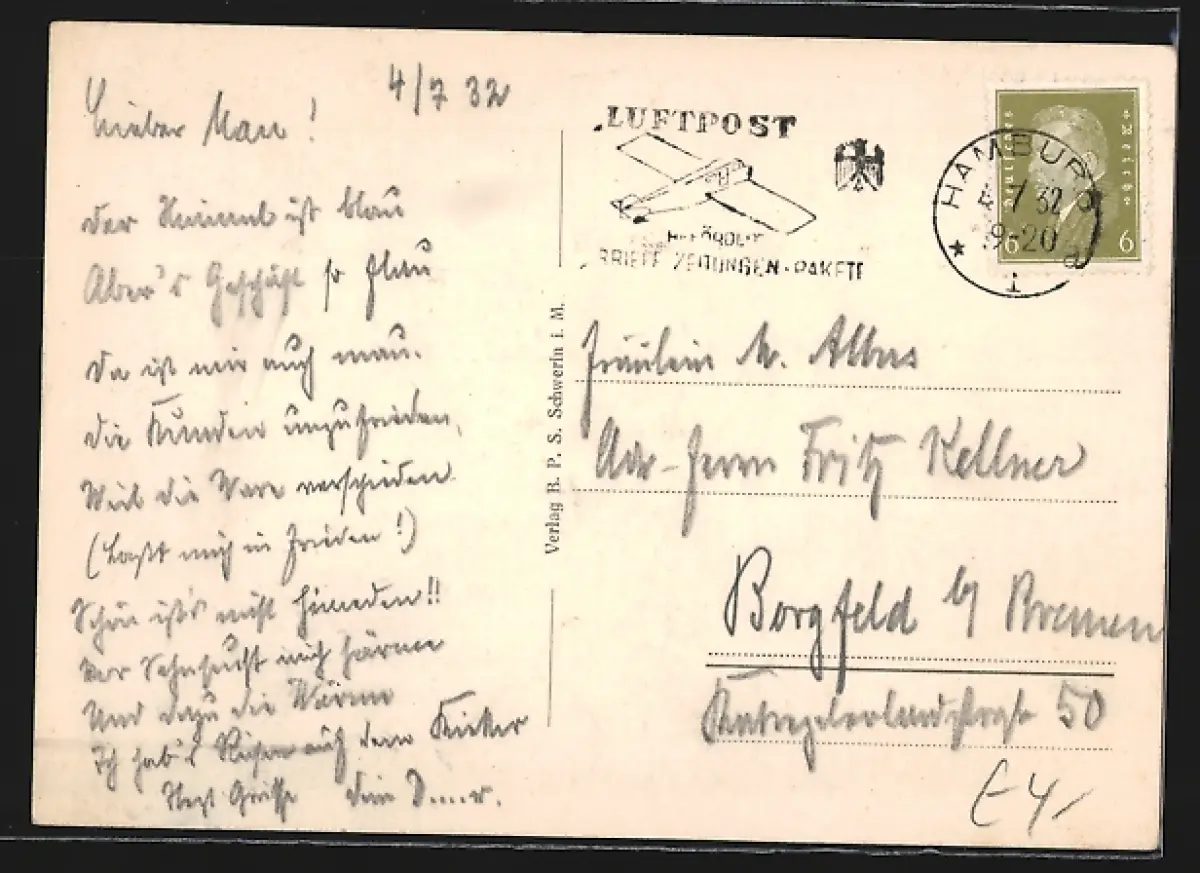 4/7 32
Lieber Mau!
der Himmel ist blau
Aber's Geschäft so flau
Da ist mir auch mau.
die Kunden unzufrieden,
Weil die Ware verschieden
(Laßt mich in Frieden!)
Schön ist's nicht hienieden!!
Vor Sehnsucht mich härme
Und dazu die Wärme
Ich hab's auf dem Kieker
Herzl Grüße dein
LUFTPOST
BEFÖRDERT
BRIEFE ZEITUNGEN-PAKETE
HAMBURG
4 7 32
9-20
* 1 d
Deutsches Reich
6 6
Fräulein M. Albers
Adr. Herrn Fritz Kellner
Borgfeld b/ Bremen
50
E 4,-
Verlag B. P. S. Schwerin i. M.